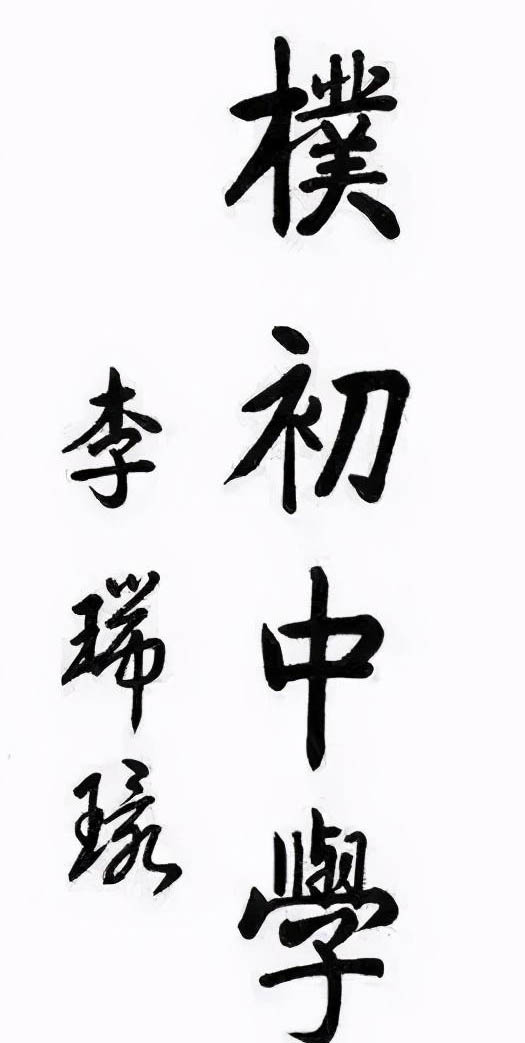 樸初中學
李瑞環